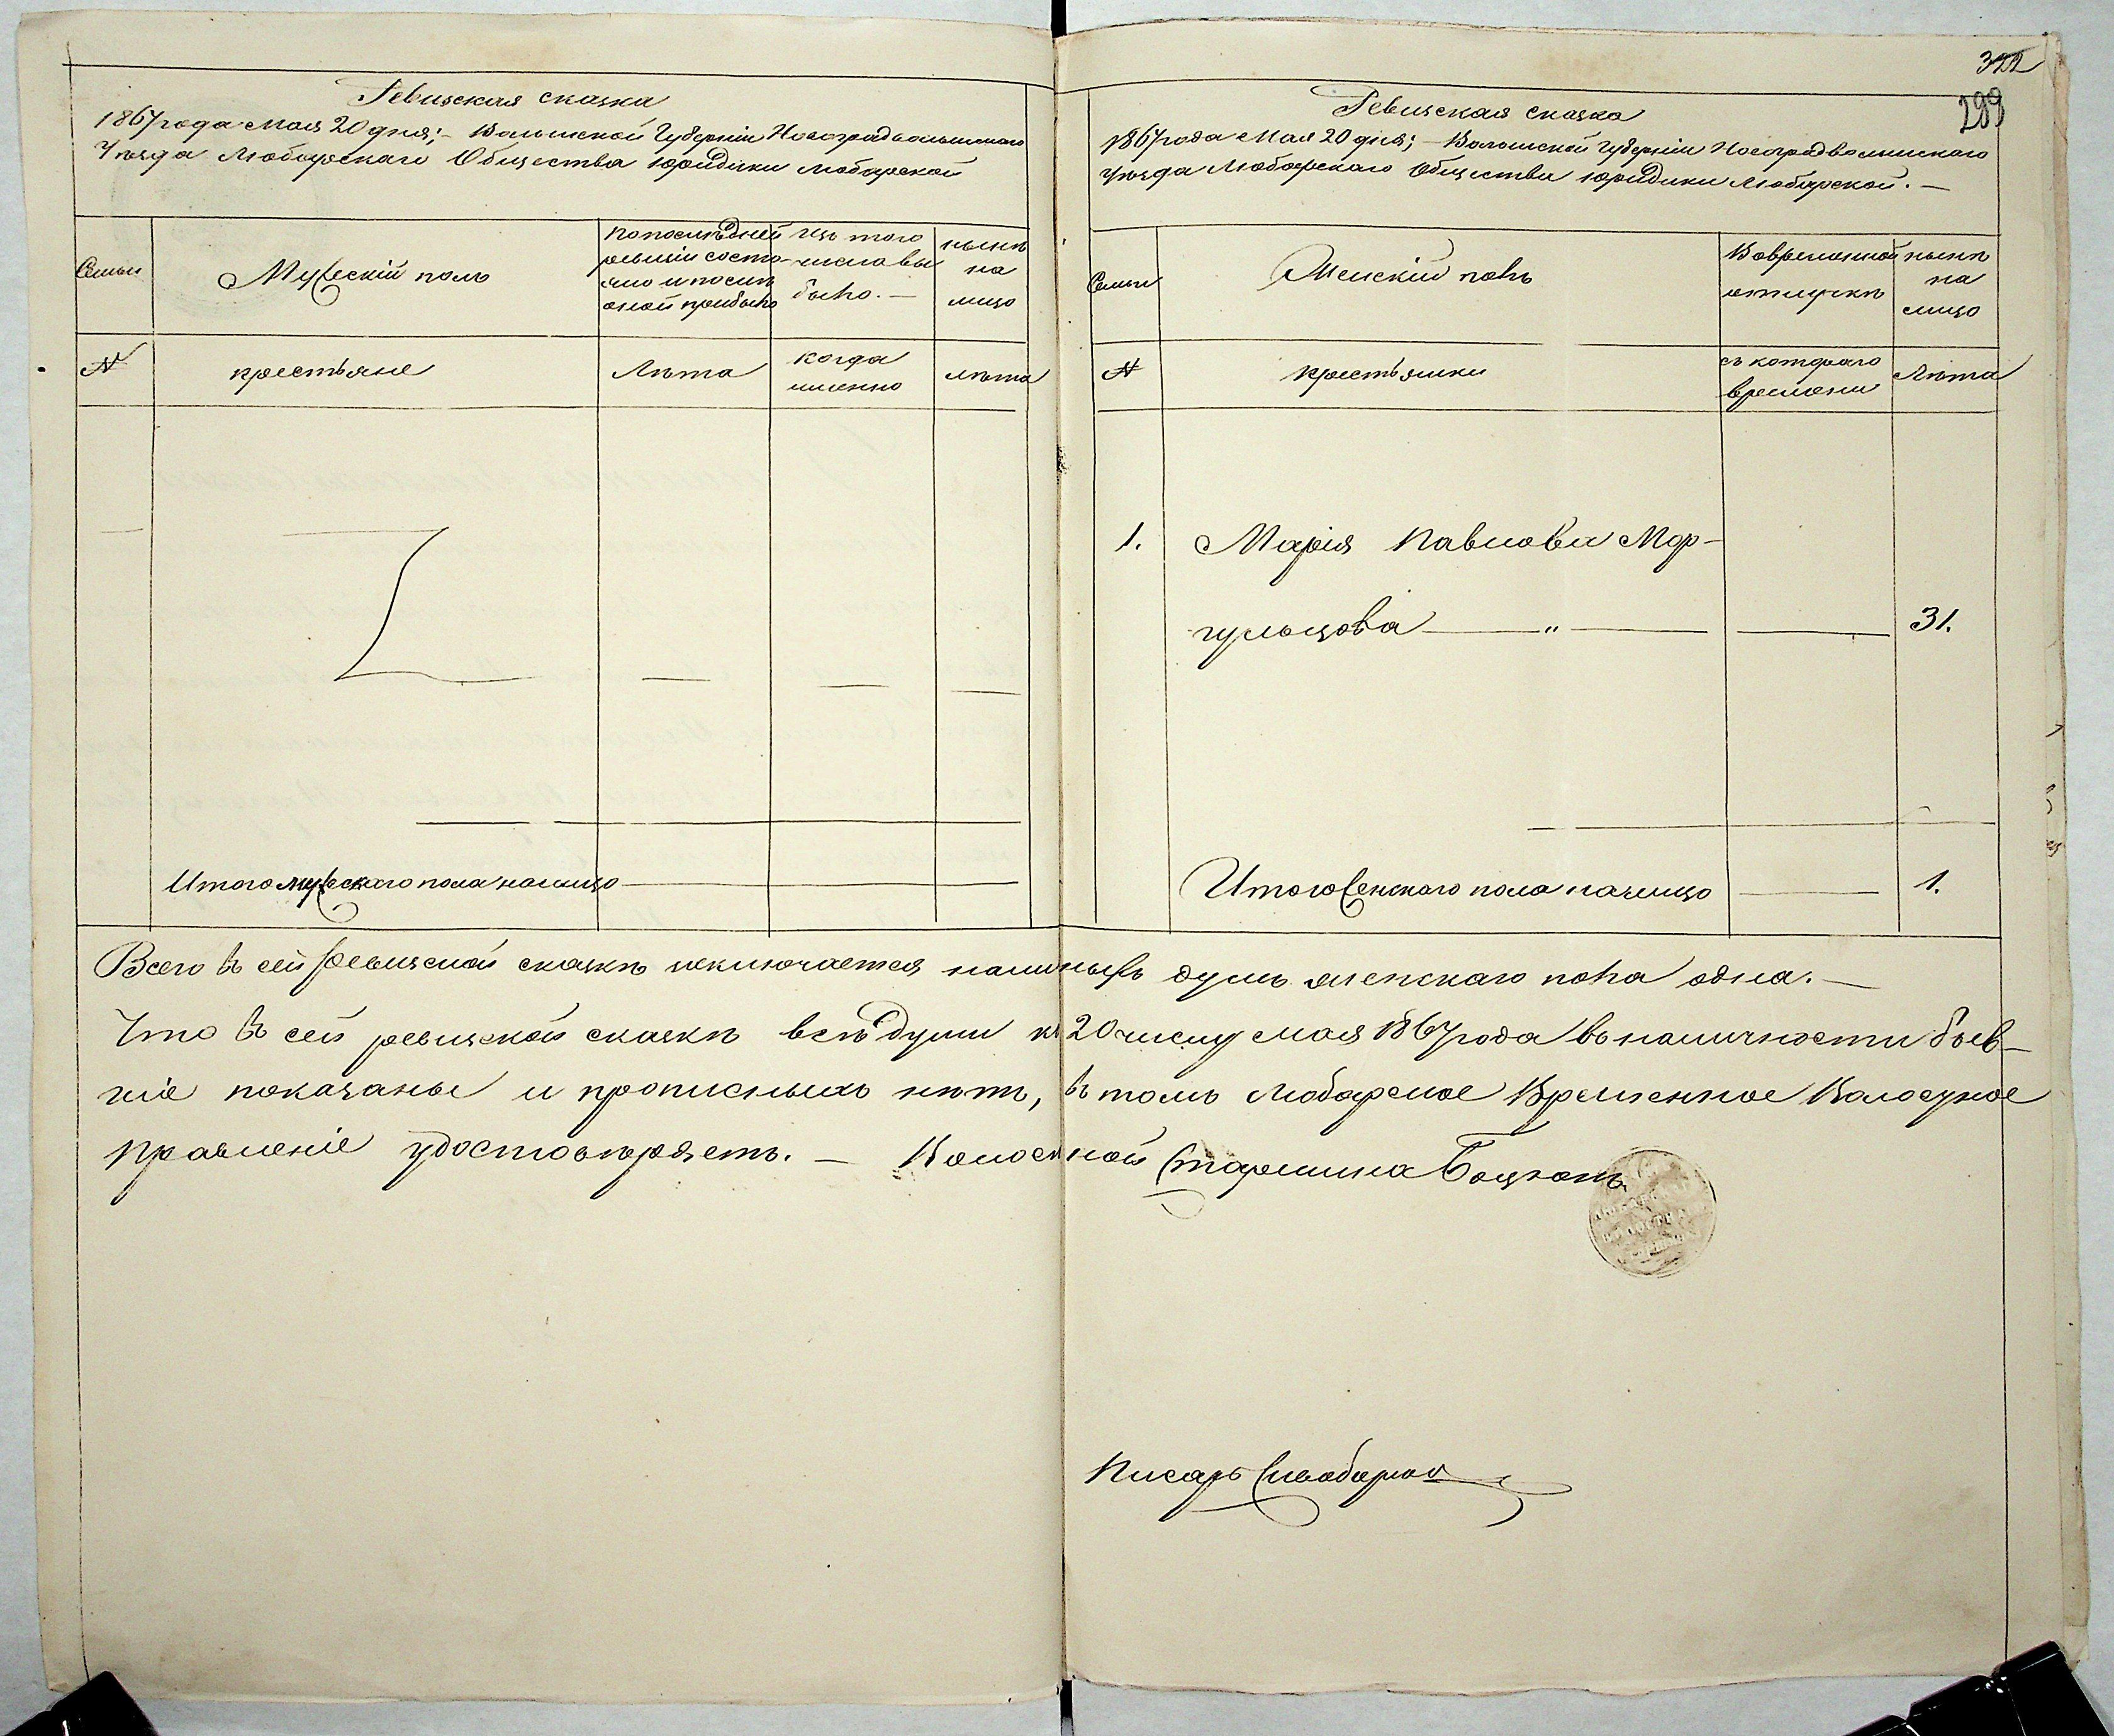 Ревизская сказка
1867 года Мая 20 дня; – Волынской Губерніи Новоградволынскаго
Уѣзда Любарскаго Общества юридики Любарской
Семьи
Мужескій полъ
По послѣдней
ревизіи состо-
яло и послѣ
оной прибыло
Изъ того
числа вы
было. —
нынѣ
на
лицо
№
крестьяне
Лѣта
когда
именно
лѣта
Итого мужескаго пола налицо
322
299
Ревизская сказка
1867 года Мая 20 дня; – Волынской Губерніи Новоградволынскаго
Уѣзда Любарскаго Общества юридики Любарской. —
Семьи
Женскій полъ
Во временной
отлучкѣ
нынѣ
на
лицо
№
крестьянки
съ котораго
времени
Лѣта
1. Марія Павлова Мор-
гульцова — „ — 31.
Итого женскаго пола налицо — 1.
Всего въ сей ревизской сказкѣ заключается наличныхъ душъ женскаго пола одна. —
Что въ сей ревизской сказкѣ всѣ души къ 20 числу Мая 1867 года въ наличности быв-
шіе показаны и прописныхъ нѣтъ, въ томъ Любарское Временное Волостное
Правленіе удостовѣряетъ. — Волостной Старшина
Писарь